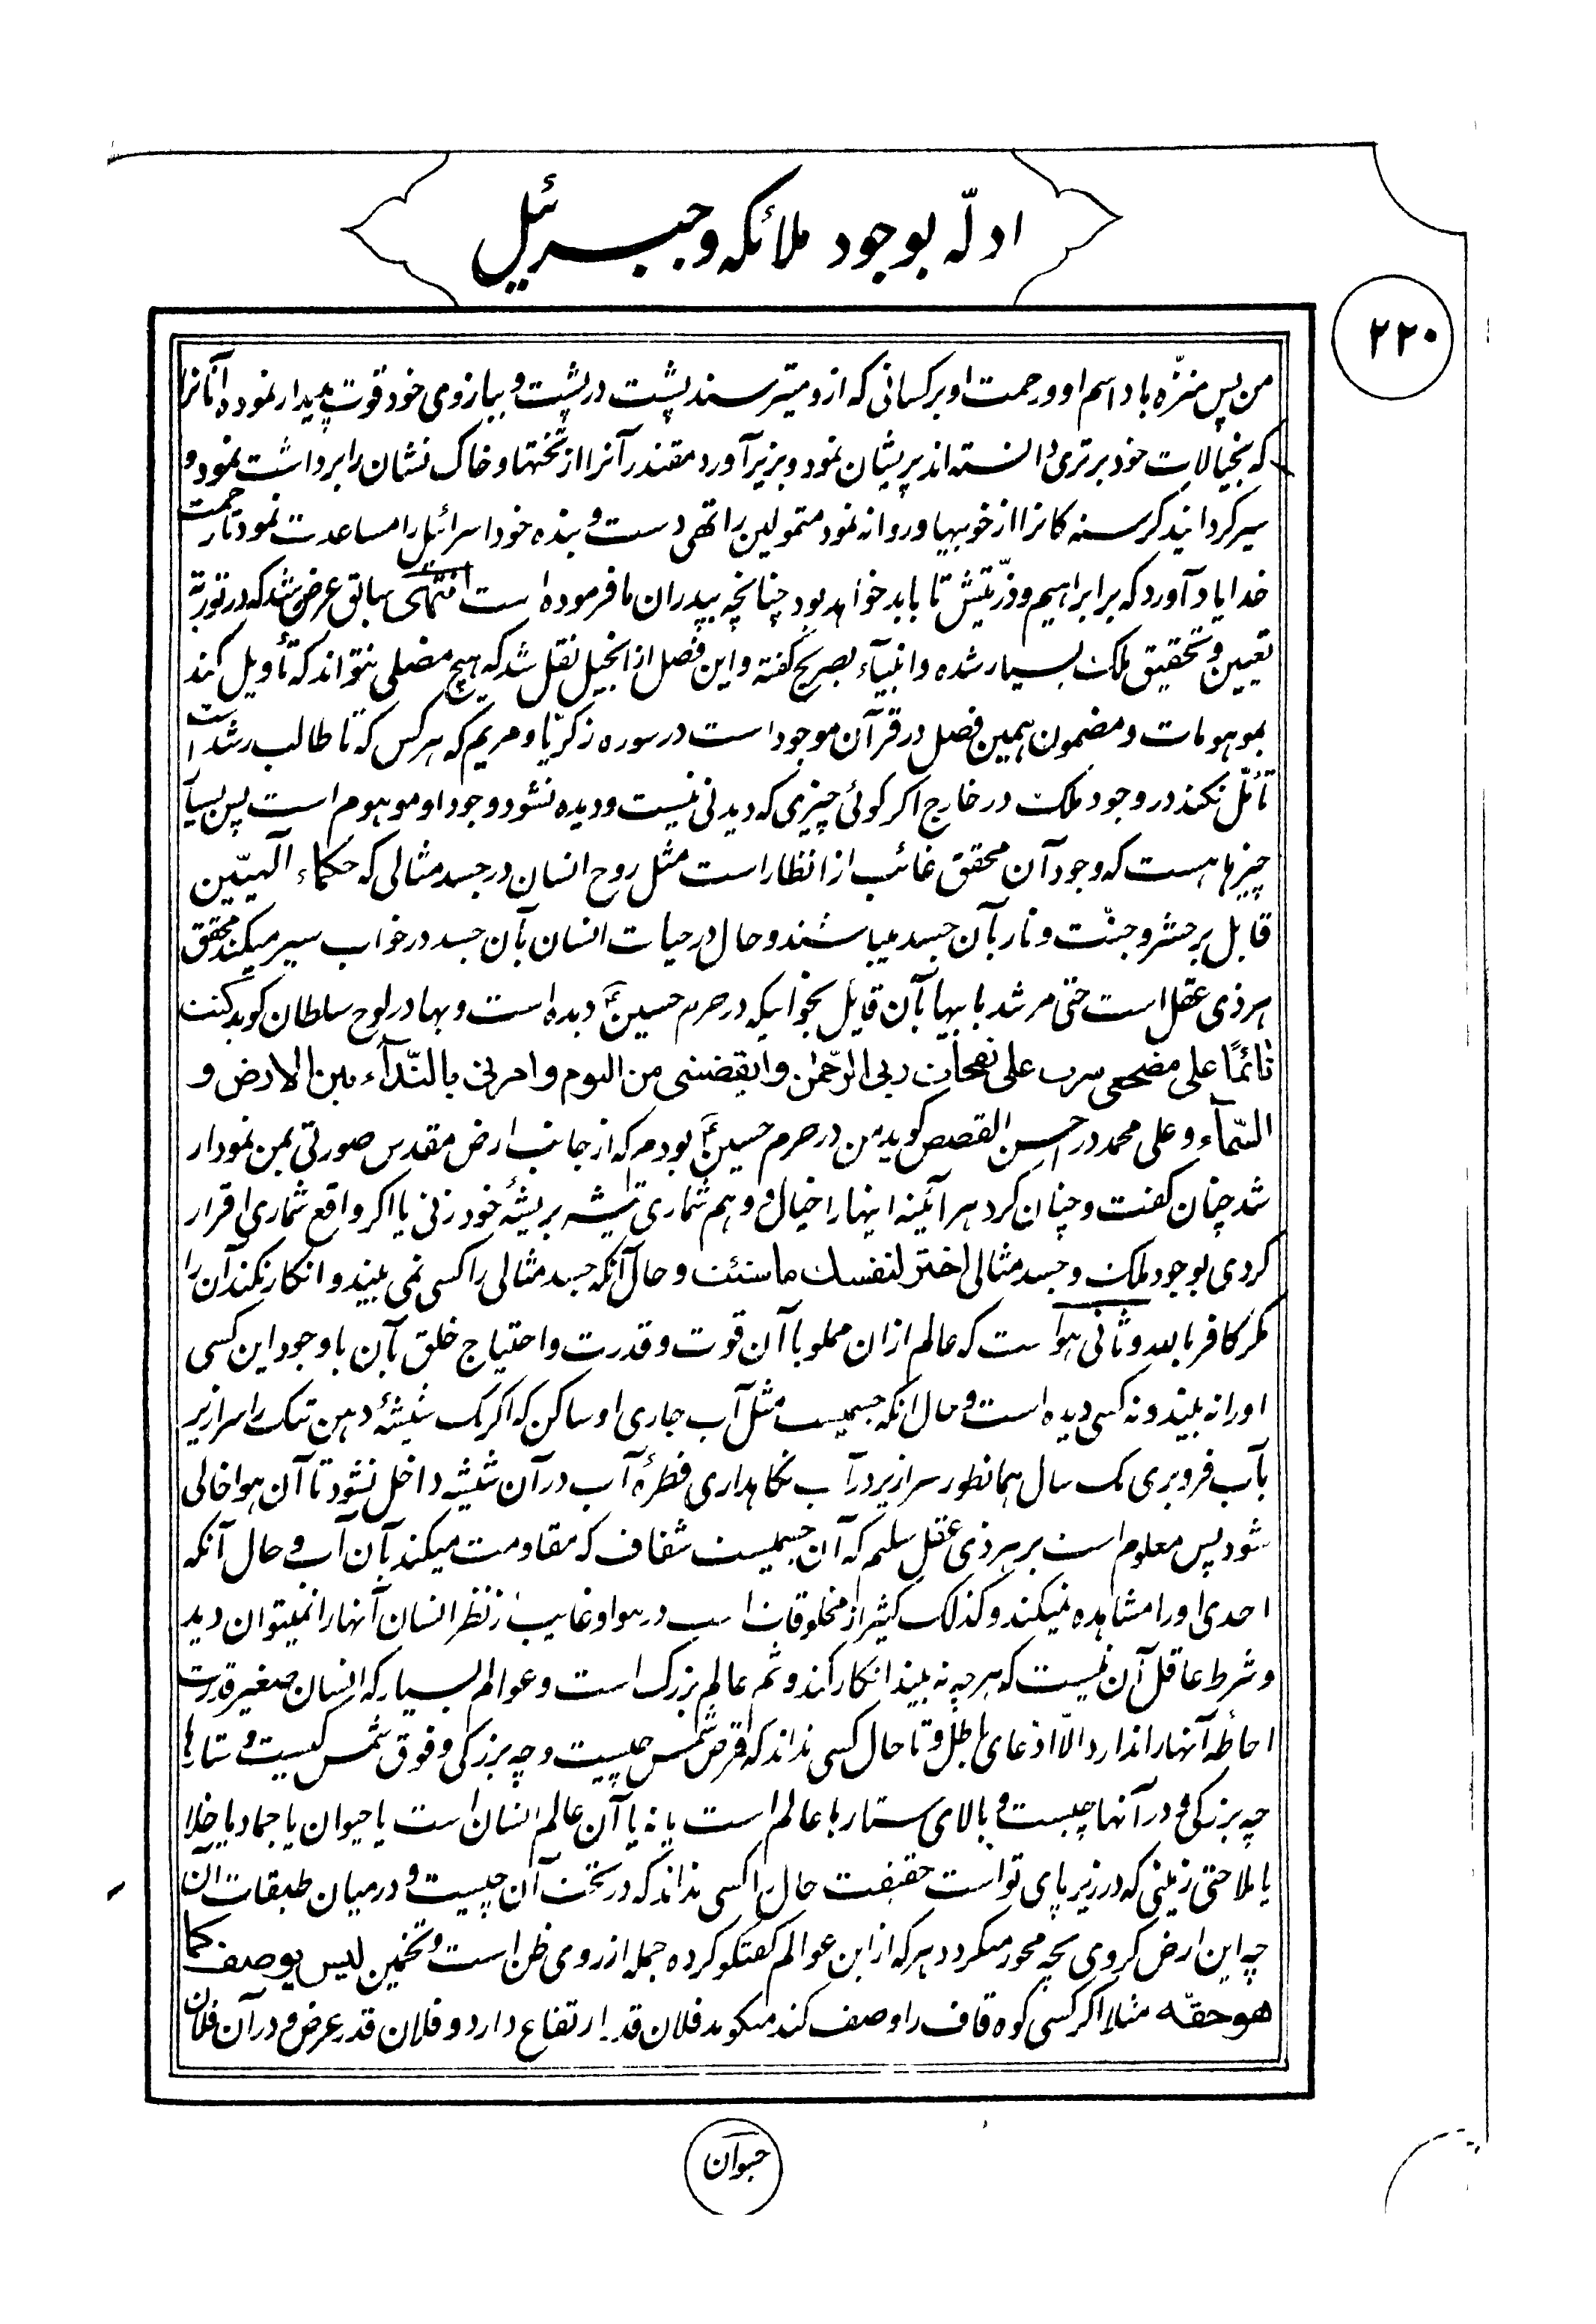 ادلّه بوجود ملائکه و جبرئیل
۲۲۰
من پس منزّه باد اسم او و رحمت او بر کسانی که ازو میترسند پشت در پشت و ببازوی خود قوت پدیدار نموده آنانرا
که بخیالات خود برتری دانسته‌اند پریشان نمود و بزیر آورد مقتدر آنرا از تختها و خاک نشان را برداشت نمود و
سیر گردانید گرسنه‌کانرا از خوبیها و روانه نمود متمولین را تهی دست و بنده خود اسرائیل را مساعدت نمود تا رحمت
خدا یاد آورد که بر ابراهیم و ذرّیتش تا بابد خواهد بود چنانچه بپدران ما فرموده است انتهی سابق عرض شد که در توریة
تعیین و تحقیق ملک بسیار شده و انبیآء بصریح گفته و این فصل از انجیل نقل شد که هیچ مضلی نتواند که تأویل کند
بموهومات و مضمون همین فصل در قرآن موجود است در سوره زکریّا و مریم که هر کس که تا طالب رشد است
تأمّل نکند در وجود ملک در خارج اکر کوئی چیزی که دیدنی نیست و دیده نشود وجود او موهوم است پس بسیار
چیزها هست که وجود آن محقق غائب از انظار است مثل روح انسان در جسد مثالی که حکماء آلهیّین
قابل بر حشر و جنّت و نار بآن جسد میباشند و حال در حیات انسان بآن جسد در خواب سیر میکند محقق
هر ذی عقل است حتی مرشد بابیها بآن قایل بخوابیکه در حرم حسینؑ دیده است و بها در لوح سلطان کوید کنت
نائمًا علی مضجعی مرت علی نفحات ربی الرّحمن و ایقضنی من النوم و امرنی بالنّدآء بین الارض و
السّمآء و علی محمد در احسن القصص کوید من در حرم حسینؑ بودم که از جانب ارض مقدس صورتی بمن نمودار
شد چنان کفت و چنان کرد هر آئینه اینها را خیال و وهم شماری تیشه بریشهٔ خود زنی یا اکر واقع شماری اقرار
کردی بوجود ملک و جسد مثالی اختر لنفسک ما شئت و حال آنکه جسد مثالی را کسی نمی بیند و انکار نکند آن را
مکر کافر ما بعد و ثانی هوا ست که عالم ازان مملو با آن قوت و قدرت و احتیاج خلق بآن با وجود این کسی
او را نه بیند و نه کسی دیده است و حال انکه جسمیست مثل آب جاری او ساکن که اکر یک شیشهٔ دهن تنک را سرازیر
بآب فرو بری یک سال همانطور سرازیر در آب نکاهداری قطرهٔ آب در آن شیشه داخل نشود تا آن هوا خالی
شود پس معلوم است بر هر ذی عقل سلیم که آن جسمیست شفاف که مقاومت میکند بآن آب و حال آنکه
احدی او را مشاهده نمیکند و کذلک کثیر از مخلوقات است در هوا و غایب ز نظر انسان آنها را نمیتوان دید
و شرط عاقل آن نیست که هر چه نه بیند انکار کند و ثم عالم بزرک است و عوالم بسیار که انسان صغیر قدرت
احاطه آنها را ندارد الّا ادعای باطل و تا حال کسی نداند که قرص شمس چیست و چه بزرکی و فوق شمس کیست و ستارها
چه بزرکی و در آنها چیست و بالای ستارها عالم است یا نه یا آن عالم انسان است یا حیوان یا جماد یا خلا
یا ملا حتی زمینی که در زیر پای تو است حقیقت حال را کسی نداند که در تحت آن چیست و در میان طبقات آن
چه این ارض کروی بچه محور میکردد هر که از این عوالم کفتکو کرده جمله از روی ظن است و تخمین لیس یوصف کما
هو حقّه مثلا اکر کسی کوه قاف را وصف کند میکوید فلان قدر ارتفاع دارد و فلان قدر عرض و در آن فلان
حیوان